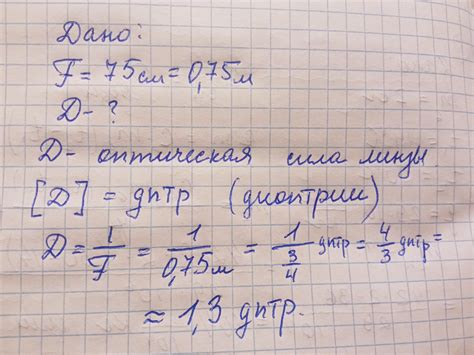 Дано:
F = 75 см = 0,75 м
D - ?
D - оптическая сила линзы.
[D] = дптр (диоптрии)
D = 1/F = 1/0,75 м = 1/(3/4) дптр = 4/3 дптр =
≈ 1,3 дптр.